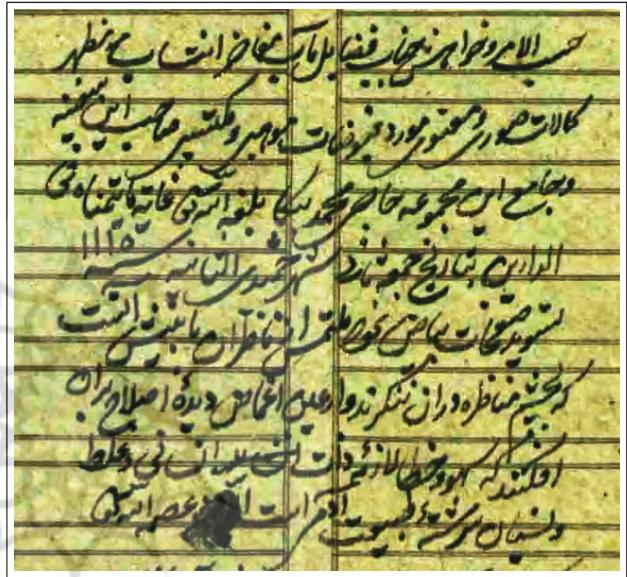 حسب الامر و خواهش جناب فضایل مآب مفاخر انتساب مظهر
کمالات صوری و معنوی مورد فیوضات موهبی و مکتسبی صاحب این سفینه
و جامع این مجموعه حاجی محمد بیکا بلغه الله تعالی غایة ما یتمناه فی
الدارین بتاریخ جمعه شهر جمیدی الثانیه سنه ۱۱۲۵
تسوید صفحات بیاض نمود ملتمس از ناظران با تمییز آنست
که بچشم مناظره در آن ننگرند و از عین اغماض دیدۀ اصلاح بر آن
افکنند که سهو و خطا لازمۀ ذات انسانی و غلط
و نسیان سرشتۀ طبیعت